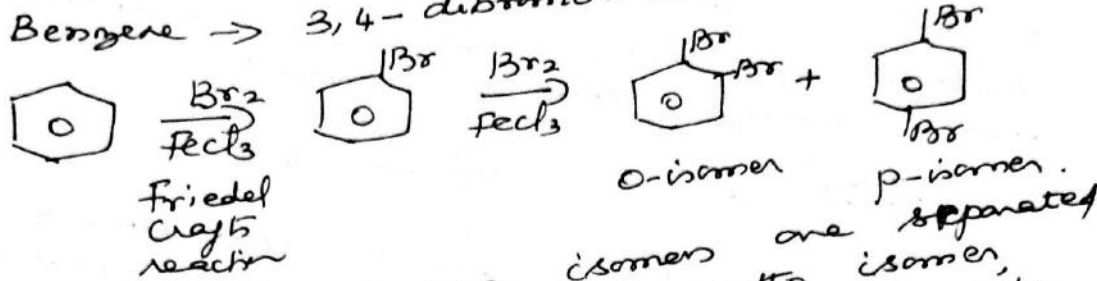 Benzene → 3,4-
Br Br Br
Br2 Br2 Br +
FeCl3 FeCl3
Br
Friedel
Crafts
reaction
o-isomer p-isomer.
isomers are separated
isomer,